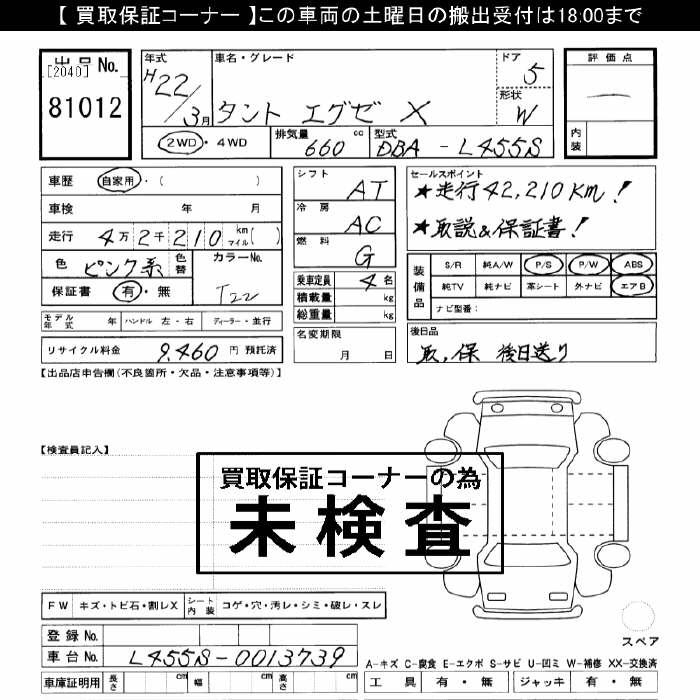 【 買取保証コーナー 】この車両の土曜日の搬出受付は18:00まで
出品 No.
[2040]
81012
年式
H22/3月
車名・グレード
タント エグゼ X
ドア
5
形状
W
評価点
内装
2WD ・ 4WD
排気量 660 cc
型式 DBA - L455S
車歴 自家用・( )
車検 年 月
走行 4万2千210 km マイル( )
色 ピンク系 色替
カラーNo.
T22
保証書 有・無
モデル年式 年 ハンドル 左・右 ディーラー・並行
リサイクル料金 9,460 円 預託済
シフト
AT
冷房
AC
燃料
G
乗車定員 4 名
積載量 kg
総重量 kg
名変期限
月 日
セールスポイント
★走行42,210Km!
★取説&保証書!
装備品
S/R 純A/W P/S P/W ABS
純TV 純ナビ 革シート 外ナビ エアB
ナビ型番:
後日品
取、保 後日送り
【出品店申告欄(不良箇所・欠品・注意事項等)】
【検査員記入】
買取保証コーナーの為
未検査
FW キズ・トビ石・割レX シート内装 コゲ・穴・汚レ・シミ・破レ・スレ
登録 No.
車台 No. L455S-0013739
車庫証明用 長さ cm 幅 cm 高さ cm
スペア
A-キズ C-腐食 E-エクボ S-サビ U-凹ミ W-補修 XX-交換済
工具 有・無 ジャッキ 有・無